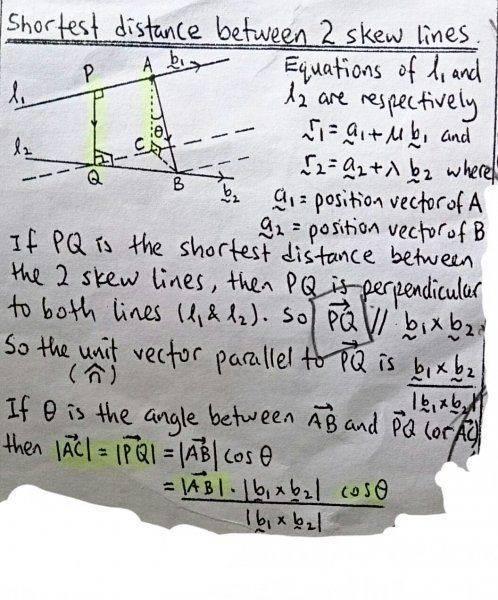 Shortest distance between 2 skew lines.
P A b₁
l₁
l₂ C θ
Q B
b₂
Equations of l₁ and
l₂ are respectively
r₁ = a₁ + μ b₁ and
r₂ = a₂ + λ b₂ where
a₁ = position vector of A
a₂ = position vector of B
If PQ is the shortest distance between
the 2 skew lines, then PQ is perpendicular
to both lines (l₁ & l₂). So PQ⃗ // b₁ × b₂
So the unit vector parallel to PQ⃗ is b₁ × b₂
(n̂) |b₁ × b₂|
If θ is the angle between AB⃗ and PQ⃗ (or AC⃗)
then |AC⃗| = |PQ⃗| = |AB⃗| cos θ
= |AB⃗| · |b₁ × b₂| cos θ
|b₁ × b₂|